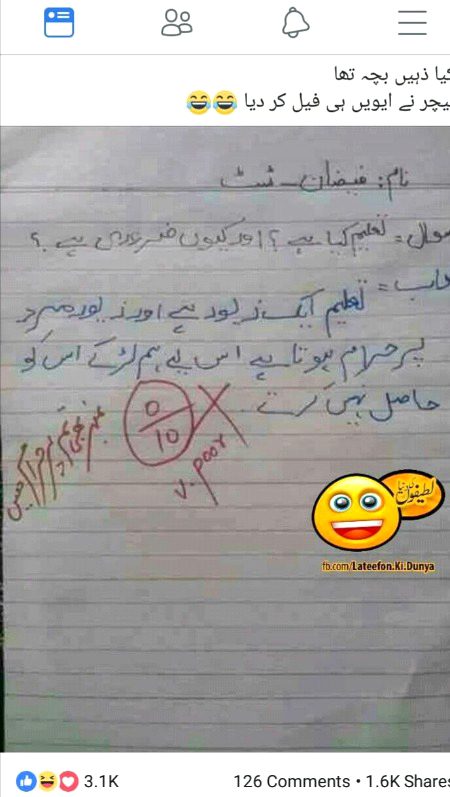 کیا ذہین بچہ تھا
ٹیچر نے ایویں ہی فیل کر دیا 😂😂
نام: فیضان - ٹسٹ
سوال = تعلیم کیا ہے؟ اور کیوں ضروری ہے؟
جواب = تعلیم ایک زیور ہے اور زیور مرد
پر حرام ہوتا ہے اس لیے ہم لڑکے اس کو
حاصل نہیں کرتے۔
0/10
v. poor
نمبر بھی تم پر حرام ہیں
لطیفوں کی دنیا
fb.com/Lateefon.Ki.Dunya
3.1K
126 Comments • 1.6K Shares